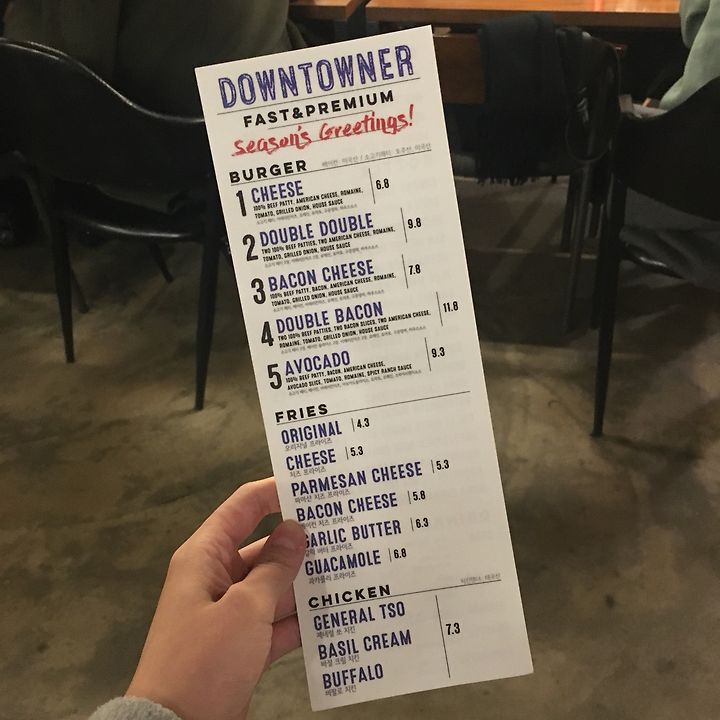 DOWNTOWNER
FAST&PREMIUM
Season's Greetings!
BURGER
베이컨: 미국산 / 소고기패티: 호주산, 미국산
1 CHEESE 6.8
100% BEEF PATTY, AMERICAN CHEESE, ROMAINE,
TOMATO, GRILLED ONION, HOUSE SAUCE
2 DOUBLE DOUBLE 9.8
TWO 100% BEEF PATTIES, TWO AMERICAN CHEESE, ROMAINE,
TOMATO, GRILLED ONION, HOUSE SAUCE
3 BACON CHEESE 7.8
100% BEEF PATTY, BACON, AMERICAN CHEESE, ROMAINE,
TOMATO, GRILLED ONION, HOUSE SAUCE
4 DOUBLE BACON 11.8
TWO 100% BEEF PATTIES, TWO BACON SLICES, TWO AMERICAN CHEESE,
ROMAINE, TOMATO, GRILLED ONION, HOUSE SAUCE
5 AVOCADO 9.3
100% BEEF PATTY, BACON, AMERICAN CHEESE,
AVOCADO SLICE, TOMATO, ROMAINE, SPICY RANCH SAUCE
FRIES
ORIGINAL 4.3
오리지널 프라이즈
CHEESE 5.3
치즈 프라이즈
PARMESAN CHEESE 5.3
파마산 치즈 프라이즈
BACON CHEESE 5.8
베이컨 치즈 프라이즈
GARLIC BUTTER 6.3
버터 프라이즈
GUACAMOLE 6.8
과카몰리 프라이즈
CHICKEN
GENERAL TSO
제네럴 쏘 치킨
BASIL CREAM 7.3
바질 크림 치킨
BUFFALO
버팔로 치킨